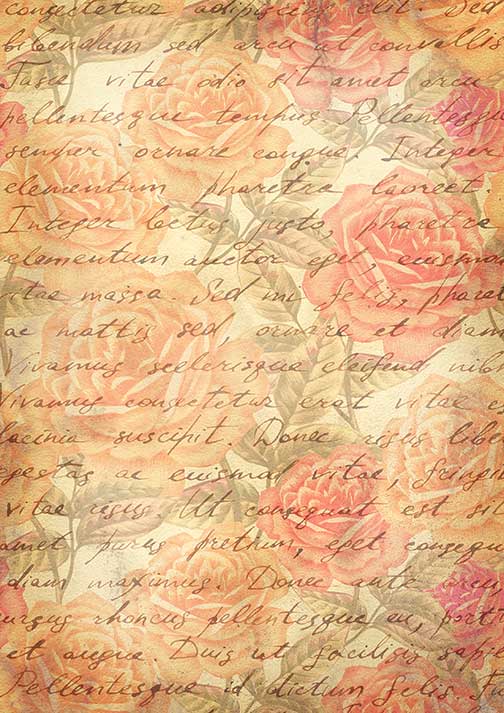 consectetur adipiscing elit. Sed
bibendum sed arcu ut convallis
Fusce vitae odio sit amet arcu
pellentesque tempus. Pellentesqu
semper ornare congue. Integer
elementum pharetra laoreet.
Integer lectus justo, pharetra
elementum auctor eget, euismo
vitae massa. Sed mi felis, pharet
ac mattis sed, ornare et diam
Vivamus scelerisque eleifend nibh
Vivamus consectetur erat vitae e
lacinia suscipit. Donec risus libe
egestas ac euismod vitae, fringi
vitae risus. Ut consequat est si
amet purus pretium, eget consequa
diam maximus. Donec ante arcu
ursus rhoncus pellentesque eu, port
et augue. Duis ut facilisis sapie
Pellentesque id dictum felis. Fu